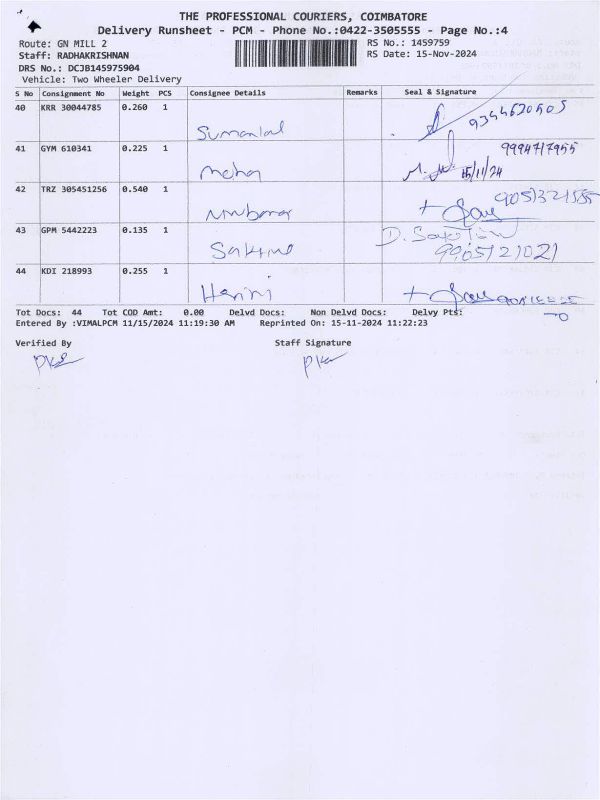 THE PROFESSIONAL COURIERS, COIMBATORE
Delivery Runsheet - PCM - Phone No.:0422-3505555 - Page No.:4
Route: GN MILL 2 RS No.: 1459759
Staff: RADHAKRISHNAN RS Date: 15-Nov-2024
DRS No.: DCJB145975904
Vehicle: Two Wheeler Delivery
S No Consignment No Weight PCS Consignee Details Remarks Seal & Signature
40 KRR 30044785 0.260 1
41 GYM 610341 0.225 1 9994717955
15/11/24
42 TRZ 305451256 0.540 1
43 GPM 5442223 0.135 1
44 KDI 218993 0.255 1
Harini
Tot Docs: 44 Tot COD Amt: 0.00 Delvd Docs: Non Delvd Docs: Delvy Pts:
Entered By :VIMALPCM 11/15/2024 11:19:30 AM Reprinted On: 15-11-2024 11:22:23
Verified By Staff Signature